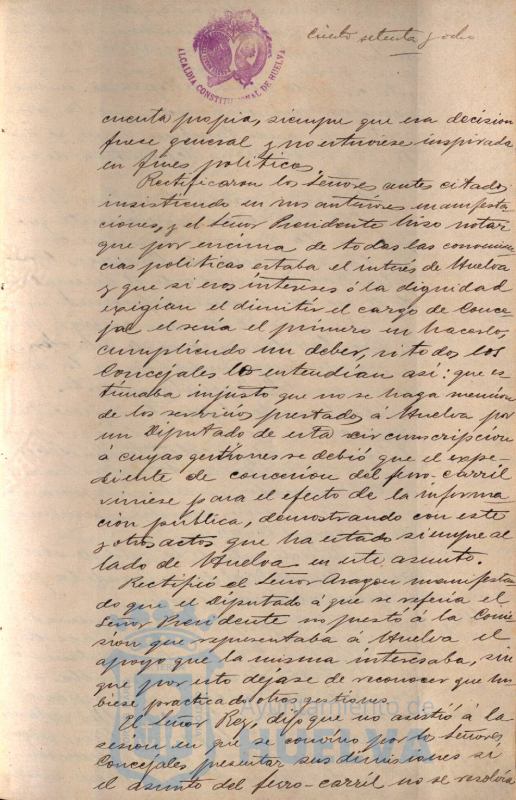 ciento setenta y ocho
ALCALDIA CONSTITUCIONAL DE HUELVA
cuenta propia, siempre que esa decision
fuese general y no estuviese inspirada
en fines politicos.
Rectificaron los Señores antes citados
insistiendo en sus anteriores manifesta
ciones, y el Señor Presidente hizo notar
que por encima de todas las convenien
cias politicas estaba el interés de Huelva
y que si esos intereses ó la dignidad
exigian el dimitir el cargo de Conce-
jal el seria el primero en hacerlo,
cumpliendo un deber, si todos los
Concejales lo entendian así: que es
timaba injusto que no se haga mencion
de los servicios prestados á Huelva por
un Diputado de esta circunscripcion
á cuyas gestiones se debió que el expe-
diente de concesion del ferro-carril
viniese para el efecto de la informa
cion pública, demostrando con este
y otros actos que ha estado siempre al
lado de Huelva en este asunto.
Rectificó el Señor Aragon manifestan
do que el Diputado á que se referia el
Señor Presidente no prestó á la Comi
sion que representaba á Huelva el
apoyo que la misma interesaba, sin
que por esto dejase de reconocer que hu
biese practicado otras gestiones.
El Señor Rey dijo que no asistió á la
sesion en que se convino por los Señores
Concejales presentar sus dimisiones si
el asunto del ferro-carril no se resolvia
Ayuntamiento de
HUELVA